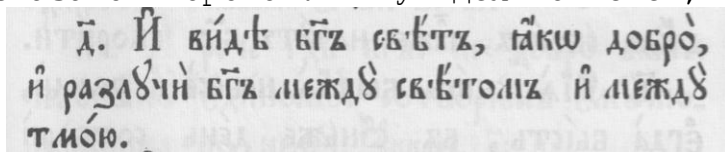 д҃. И҆ ви́дѣ бг҃ъ свѣ́тъ, ꙗ҆́кѡ добро̀,
и҆ разлꙋчѝ бг҃ъ междꙋ̀ свѣ́томъ и҆ междꙋ̀
тмо́ю.